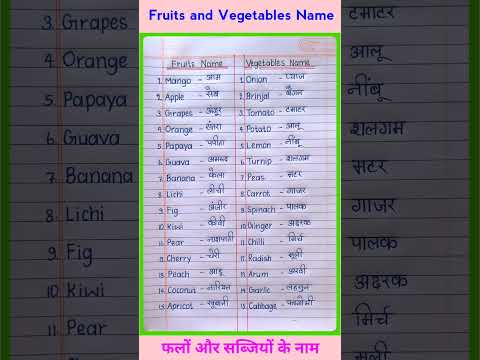 Fruits and Vegetables Name
3. Grapes
4 Orange
5 Papaya
6 Guava
7. Banana
8. Lichi
9. Fig
10 Kiwi
11. Pear
Fruits Name
1. Mango - आम
2. Apple - सेब
3. Grapes - अंगूर
4. Orange - संतरा
5. Papaya - पपीता
6. Guava - अमरूद
7. Banana - केला
8. Lichi - लीची
9. Fig - अंजीर
10. Kiwi - कीवी
11. Pear - नाशपाती
12. Cherry - चेरी
13. Peach - आडू
14. Coconut - नारियल
15. Apricot - खुबानी
Vegetables Name
1. Onion - प्याज
2. Brinjal - बैंगन
3. Tomato - टमाटर
4. Potato - आलू
5. Lemon - नींबू
6. Turnip - शलगम
7. Peas - मटर
8. Carrot - गाजर
9. Spinach - पालक
10. Ginger - अदरक
11. Chilli - मिर्च
12. Radish - मूली
13. Arum - अरबी
14. Garlic - लहसुन
15. Cabbage -
टमाटर
आलू
नींबू
शलगम
मटर
गाजर
पालक
अदरक
मिर्च
मूली
फलों और सब्जियों के नाम